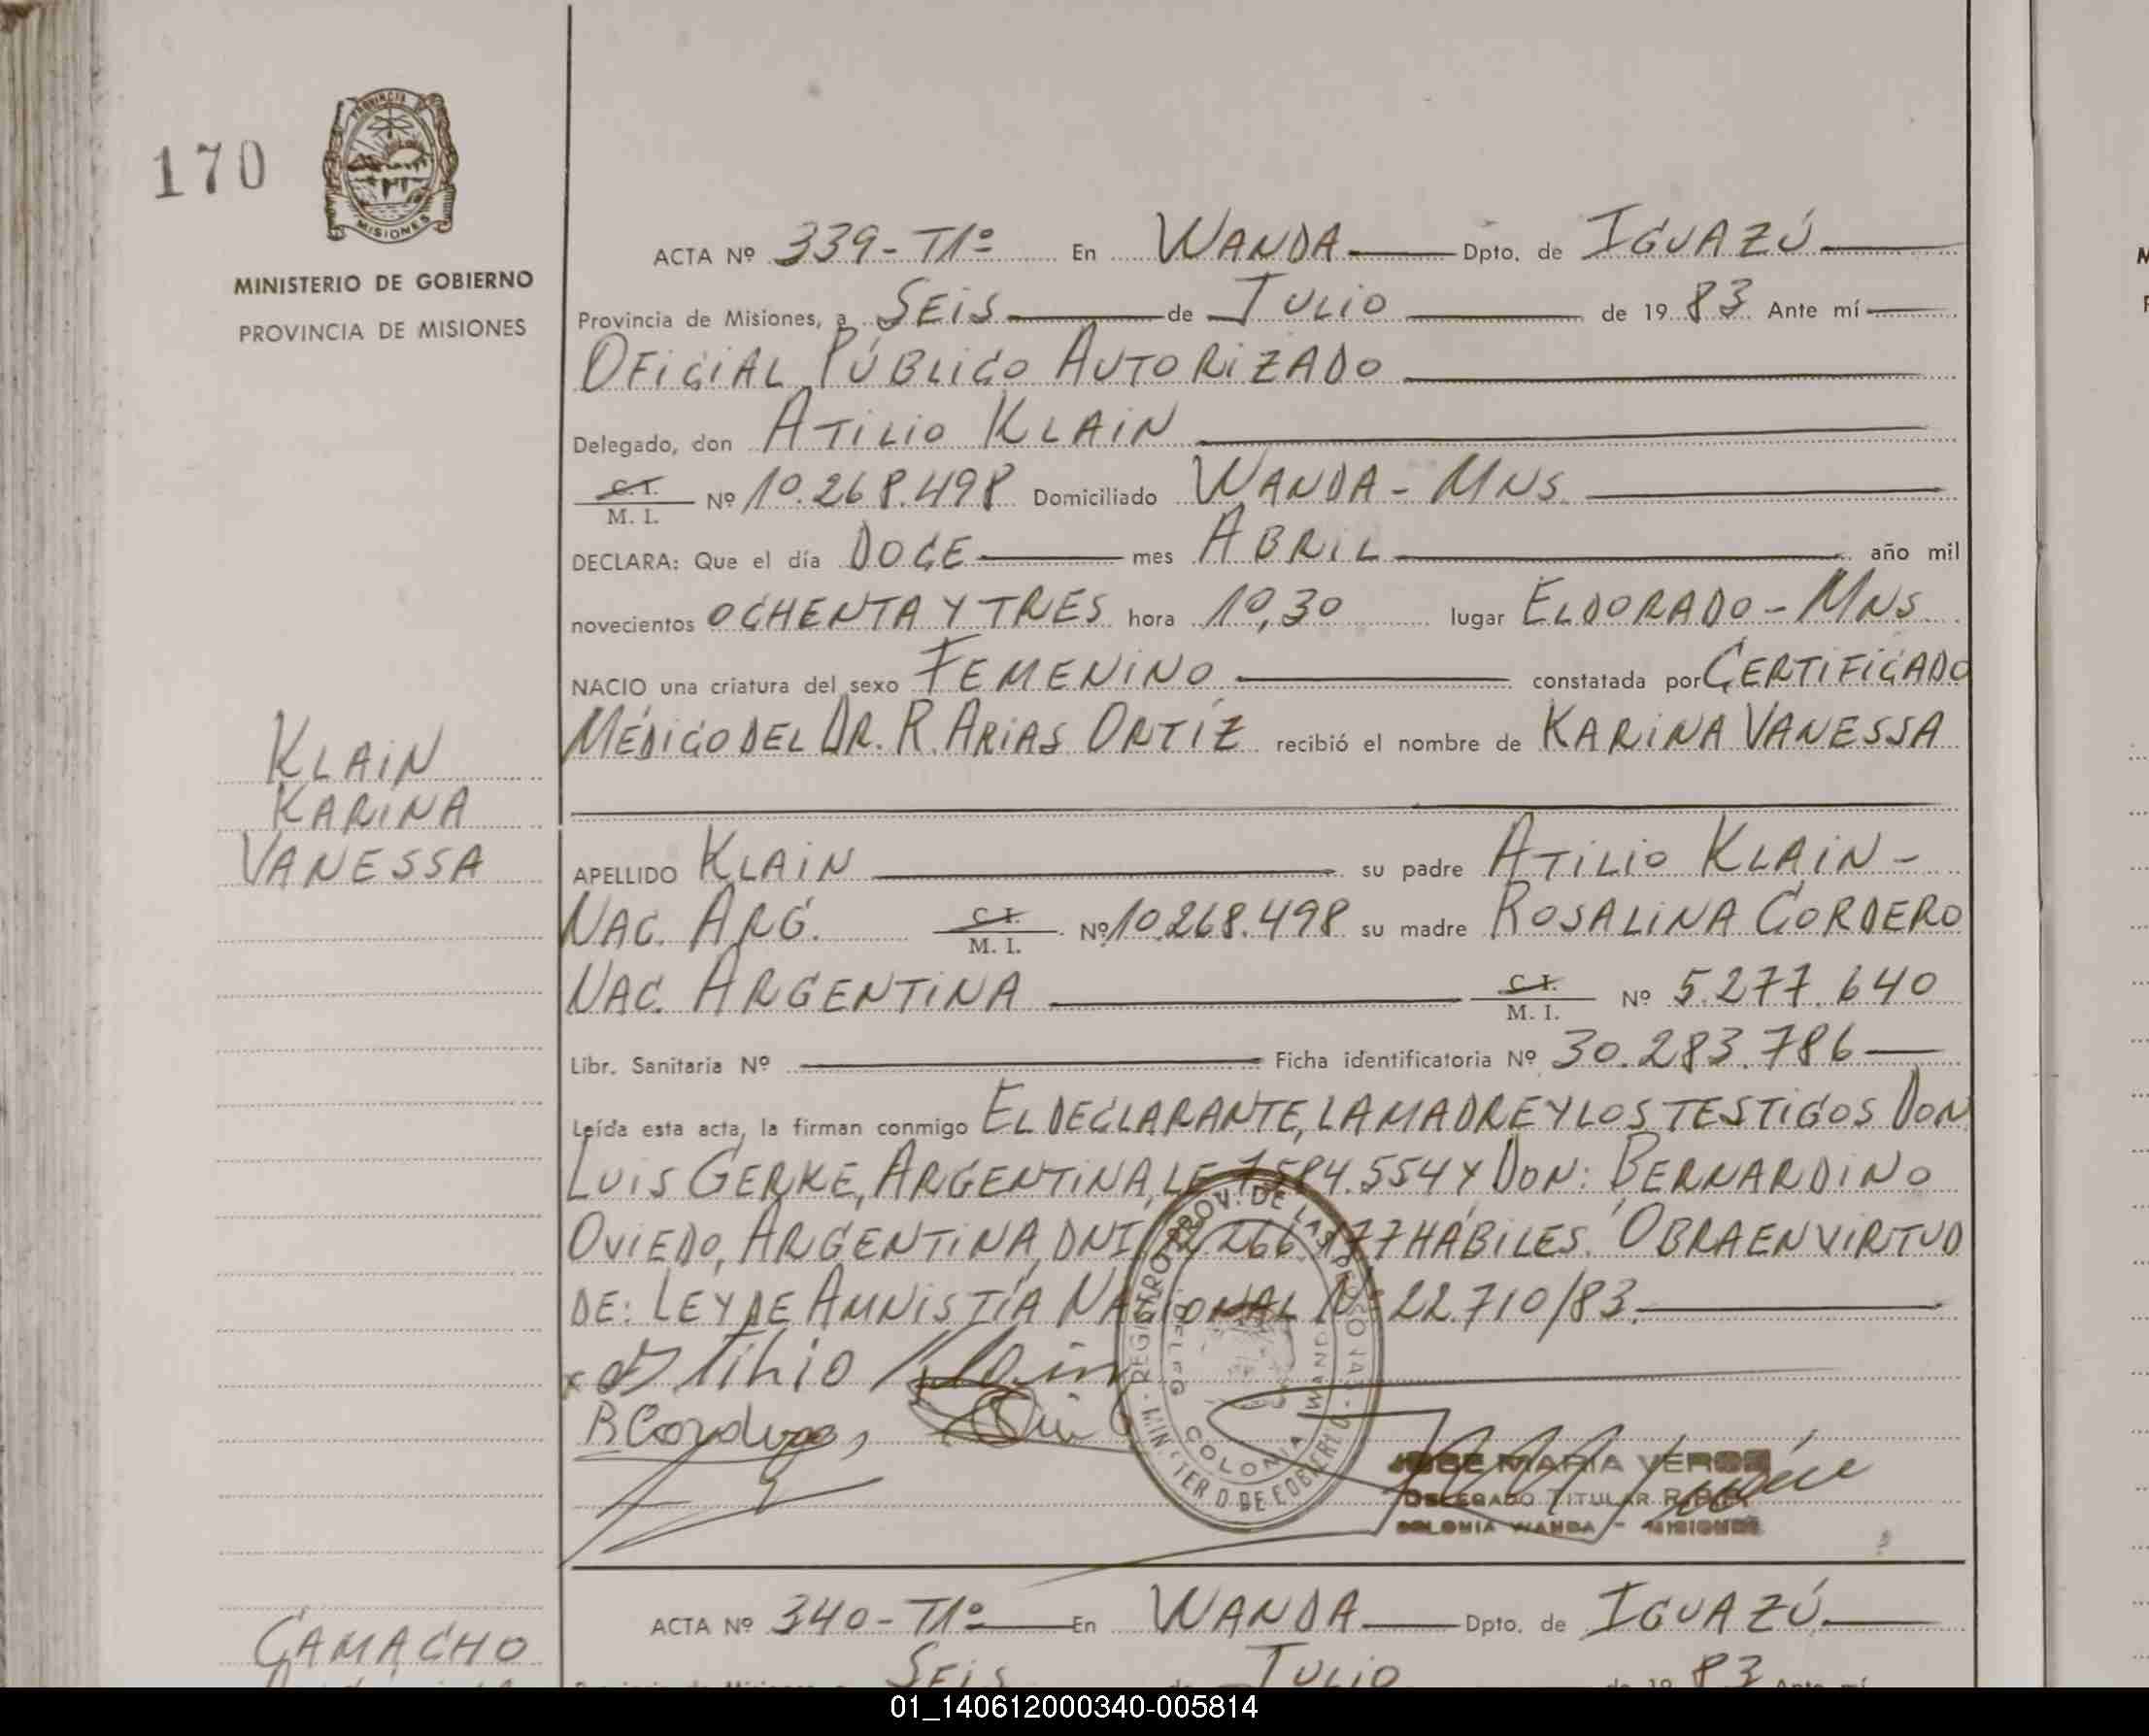 170
PROVINCIA DE
MISIONES
MINISTERIO DE GOBIERNO
PROVINCIA DE MISIONES
ACTA Nº 339-T1º En WANDA Dpto. de IGUAZÚ
Provincia de Misiones, a SEIS de JULIO de 19 83 Ante mí
OFICIAL PÚBLICO AUTORIZADO
Delegado, don ATILIO KLAIN
C.I. M. I. Nº 10.268.498 Domiciliado WANDA - MNS.
DECLARA: Que el día DOCE mes ABRIL año mil
novecientos OCHENTA Y TRES hora 10,30 lugar ELDORADO - MNS.
NACIO una criatura del sexo FEMENINO constatada por CERTIFICADO
MÉDICO DEL DR. R. ARIAS ORTÍZ recibió el nombre de KARINA VANESSA
KLAIN
KARINA
VANESSA
APELLIDO KLAIN su padre ATILIO KLAIN -
NAC. ARG. C.I. M. I. Nº 10.268.498 su madre ROSALINA CORDERO
NAC. ARGENTINA C.I. M. I. Nº 5.277.640
Libr. Sanitaria Nº Ficha identificatoria Nº 30.283.786
Leída esta acta, la firman conmigo EL DECLARANTE, LA MADRE Y LOS TESTIGOS DON
LUIS GERKE, ARGENTINA, LE 7.584.554 Y DON: BERNARDINO
OVIEDO, ARGENTINA, DNI HÁBILES. OBRA EN VIRTUD
DE: LEY DE AMNISTÍA NACIONAL Nº 22.710/83.
Atilio Klain
R Cordero
REGISTRO PROV. DE LAS PERSONAS - MINISTERIO DE GOBIERNO
DELEG COLONIA WANDA
JOSE MARIA
DELEGADO TITULAR
COLONIA WANDA - MISIONES
ACTA Nº 340-T1º En WANDA Dpto. de IGUAZÚ
CAMACHO
SEIS de JULIO de 19 83 Ante mí
01_140612000340-005814